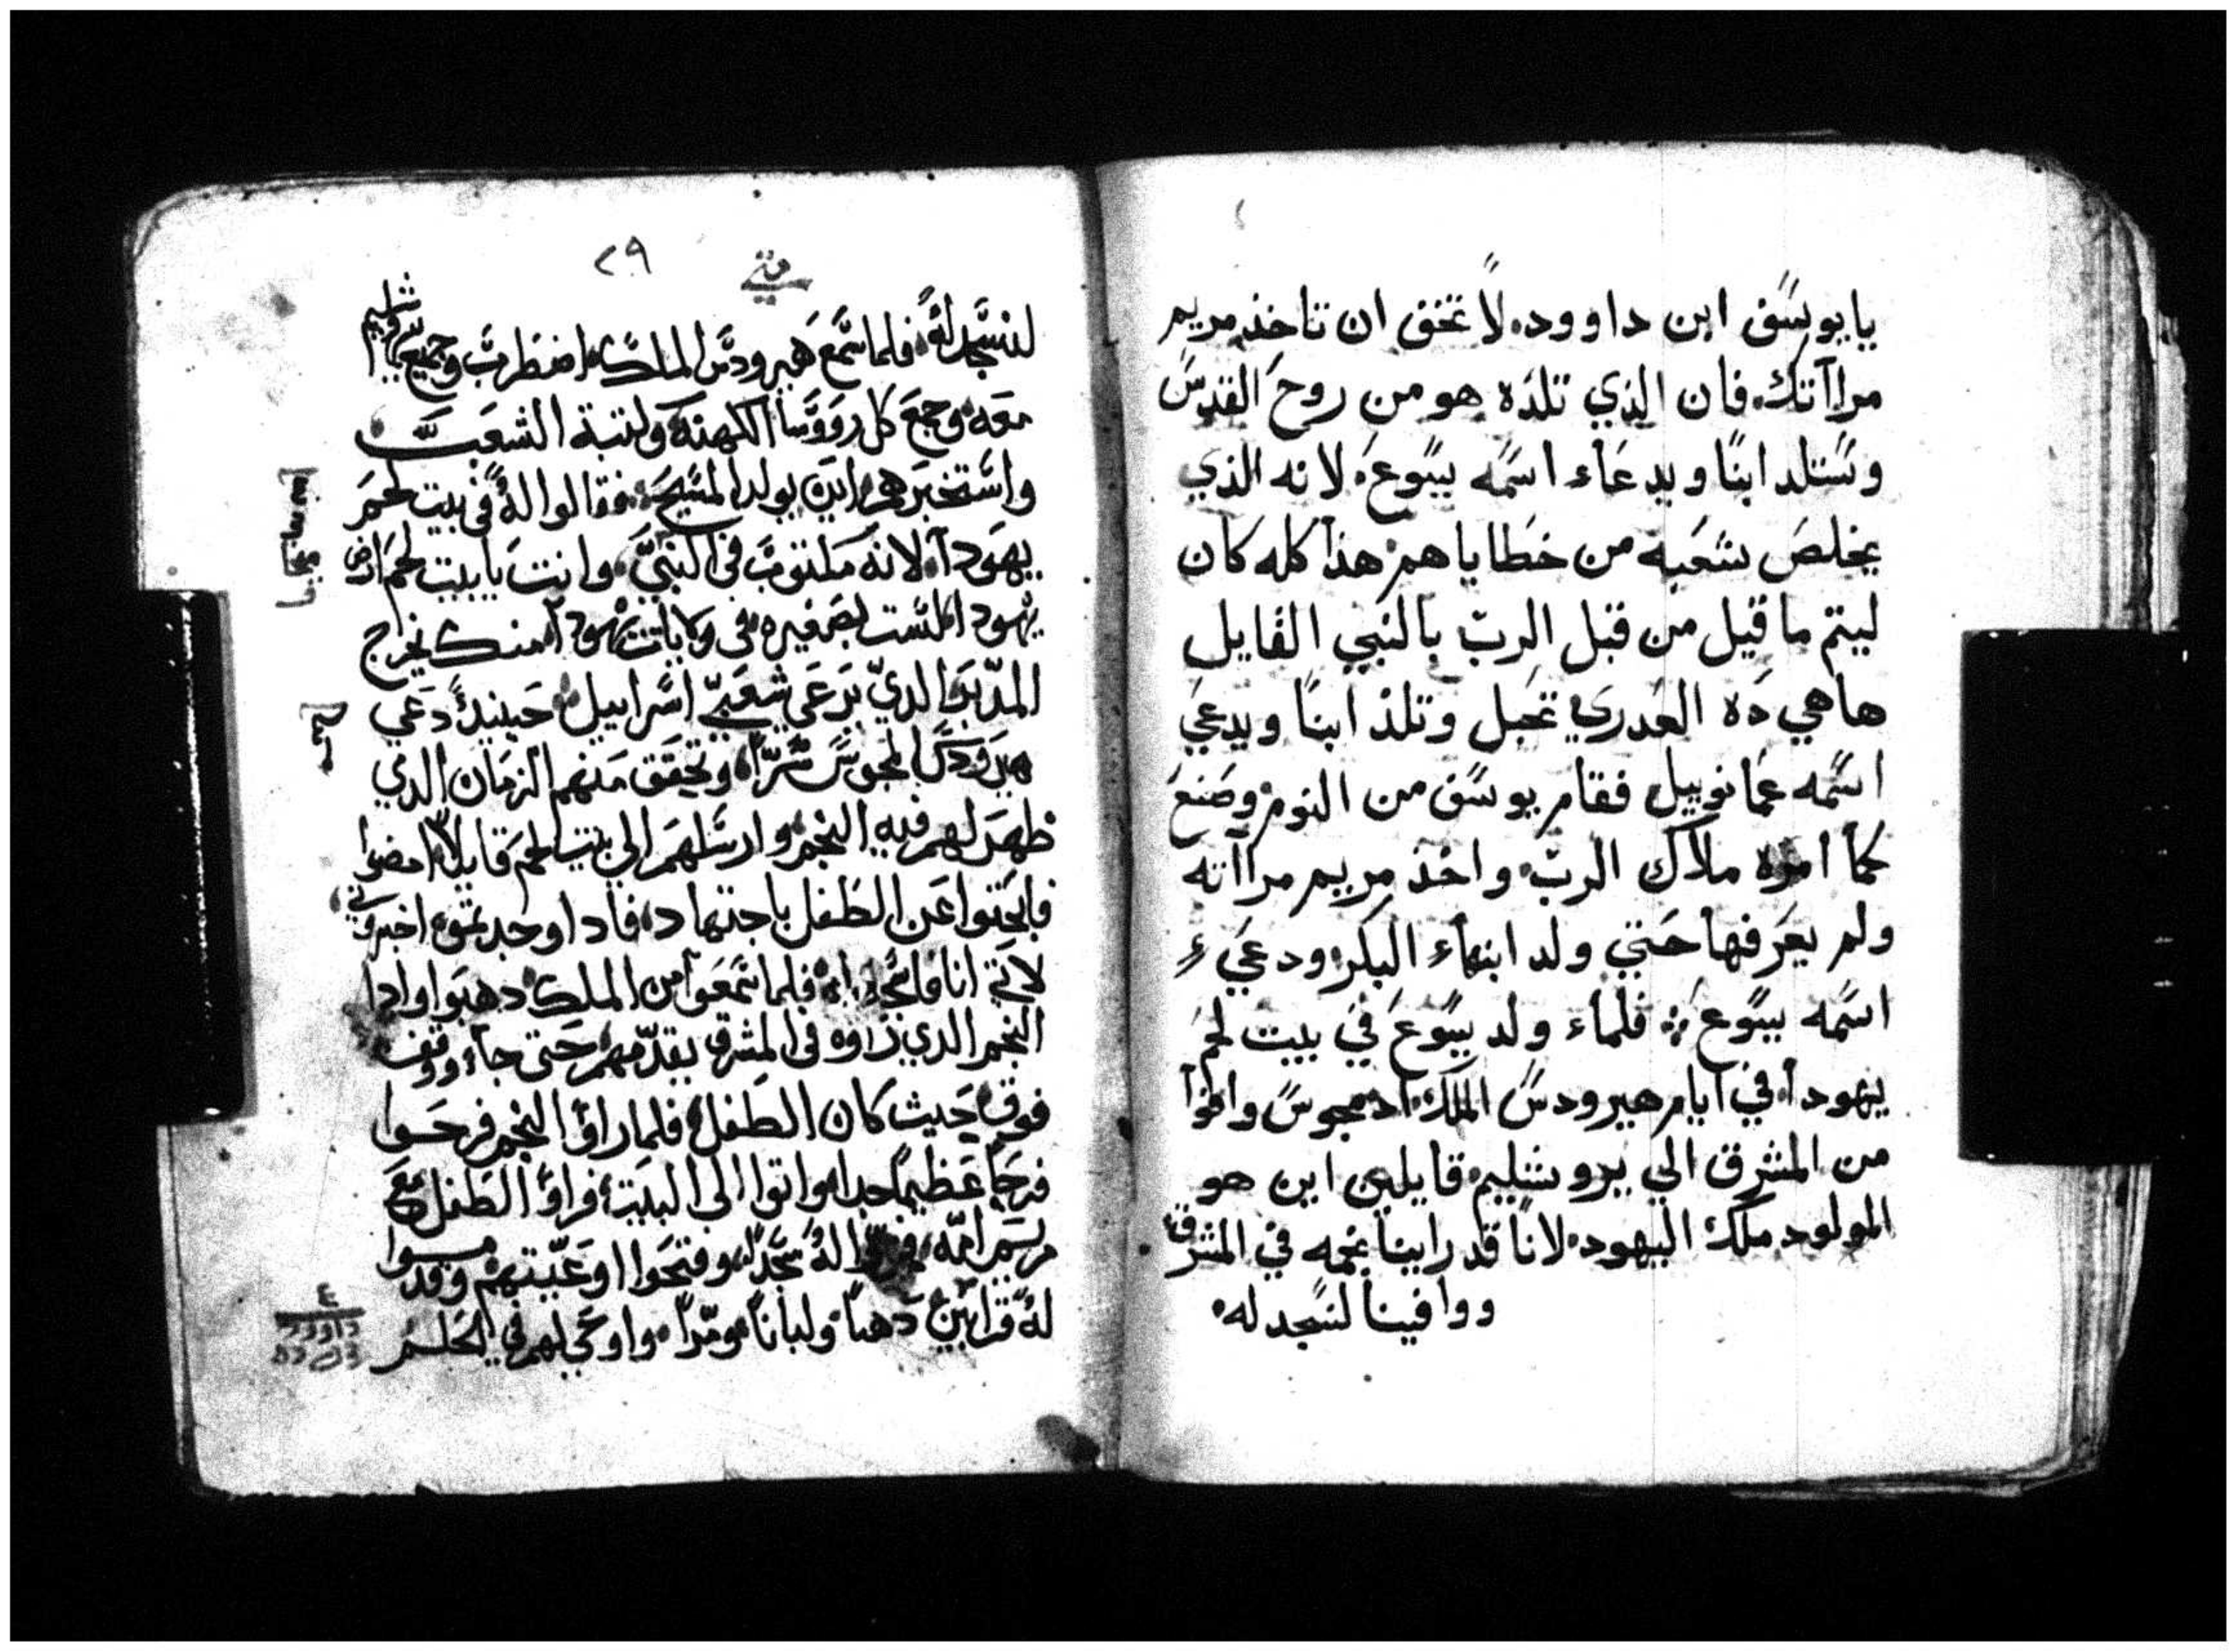 يايوسف ابن داوود لا تخف ان تاخذ مريم
مراآتك فان الذي تلده هو من روح القدس
وستلد ابنًا ويدعاء اسمه يسوع لانه الذي
يخلص شعبه من خطاياهم هذا كله كان
ليتم ما قيل من قبل الرب بالنبي القايل
هاهي ده العدري تحبل وتلد ابنًا ويدعي
اسمه عمانوييل فقام يوسف من النوم وصنع
كما امره ملاك الرب واخذ مريم مراآته
ولم يعرفها حتي ولد ابنهاء البكر ودعي
اسمه يسوع فلماء ولد يسوع في بيت لحم
يهودا في ايام هيرودس الملك اد مجوس وافوا
من المشرق الي يروشليم قايلين اين هو
المولود ملك اليهود لانا قد راينا نجمه في المشرق
ووافينا لنسجد له
متي
٢٩
لنسجد له فلما سمع هيرودس الملك اضطرب وجميع يروشليم
معه وجمع كل رووسا الكهنة وكتبة الشعب
واستخبرهم اين يولد المسيح فقالوا له في بيت لحم
يهودا لانه مكتوب في النبي وانت يا بيت لحم ارض
يهودا لست بصغيره في ولايات يهودا منك يخرج
المدبر الدي يرعي شعبي اسراييل حينيد دعي
هيرودس المجوس سرًا وتحقق منهم الزمان الدي
ظهر لهم فيه النجم وارسلهم الي بيت لحم قايلا امضوا
فابحتوا عن الطفل باجتهاد فادا وجدتموه اخبروني
لاتي انا فاسجد له فلما سمعوا من الملك دهبوا وادا
النجم الدي راوه في المشرق يقدمهم حتي جاء ووقف
فوق حيث كان الطفل فلما راوا النجم فرحوا
فرحًا عظيمًا جدا واتوا الي البيت فراوا الطفل مع
مريم امه فخروا له سجدًا وفتحوا اوعيتهم وقدموا
له قرابين دهبًا ولبانًا ومرًا واوحي لهم في الحلم
٤